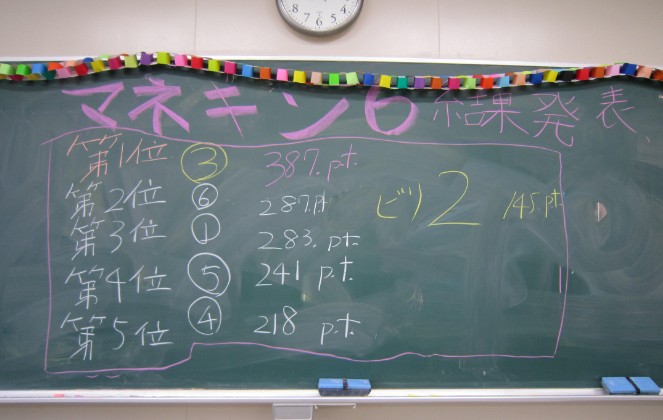 マネキン6 結果発表
第1位 ③ 387.pt
第2位 ⑥ 287.pt ビリ 2 145.pt
第3位 ① 283.pt
第4位 ⑤ 241 pt
第5位 ④ 218 pt